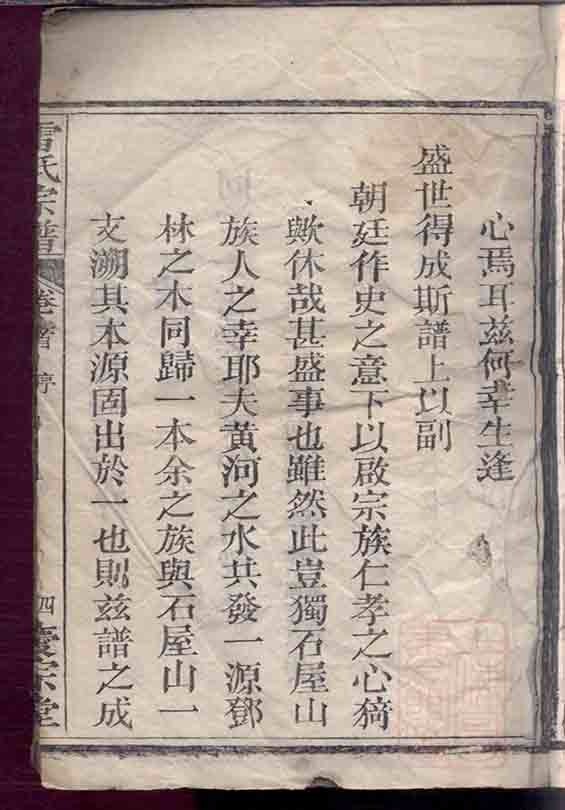 心焉耳兹何幸生逢
盛世得成斯譜上以副
朝廷作史之意下以啟宗族仁孝之心猗
歟休哉甚盛事也雖然此豈獨石屋山
族人之幸耶夫黃河之水共發一源鄧
林之木同歸一本余之族與石屋山一
支溯其本源固出於一也則兹譜之成
氏宗譜
卷首
四
宗堂